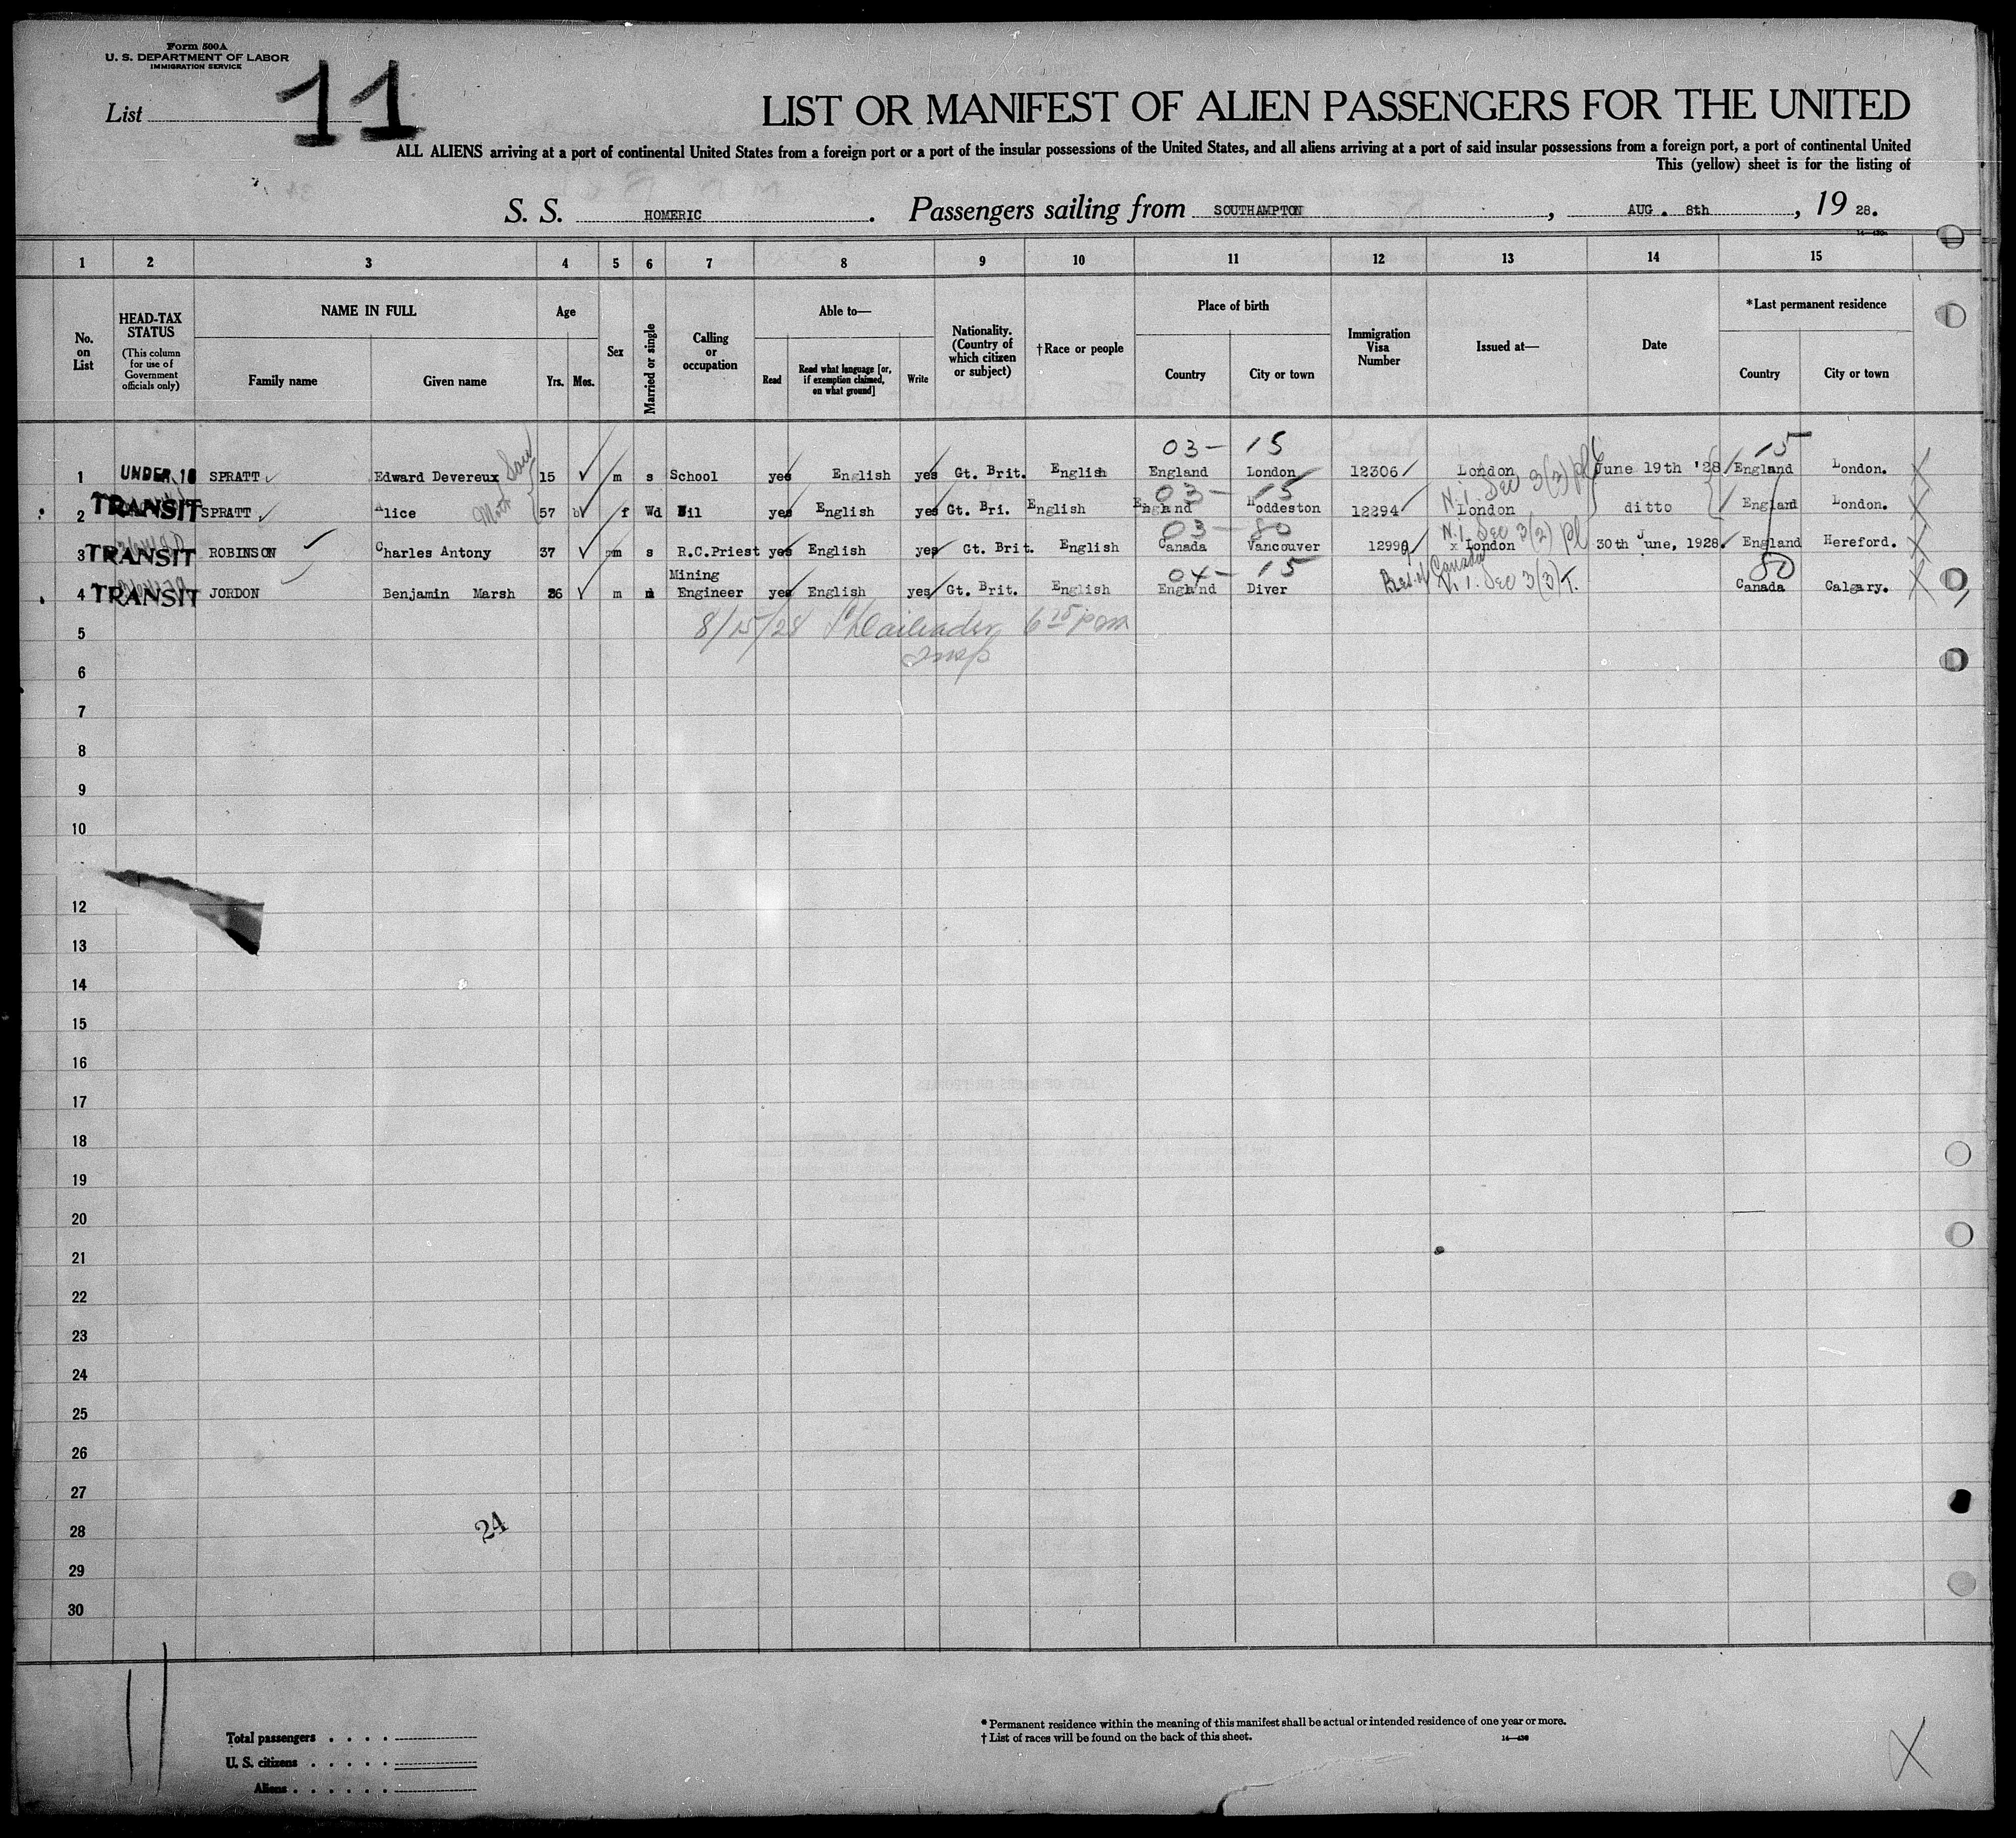 Form 500A
U. S. DEPARTMENT OF LABOR
IMMIGRATION SERVICE
List 11
LIST OR MANIFEST OF ALIEN PASSENGERS FOR THE UNITED
ALL ALIENS arriving at a port of continental United States from a foreign port or a port of the insular possessions of the United States, and all aliens arriving at a port of said insular possessions from a foreign port, a port of continental United
This (yellow) sheet is for the listing of
S. S. HOMERIC. Passengers sailing from SOUTHAMPTON, AUG. 8th, 19 28.
1 2 3 4 5 6 7 8 9 10 11 12 13 14 15
No. on List
HEAD-TAX STATUS (This column for use of Government officials only)
NAME IN FULL
Family name
Given name
Age
Yrs. Mos.
Sex
Married or single
Calling or occupation
Able to—
Read
Read what language [or, if exemption claimed, on what ground]
Write
Nationality. (Country of which citizen or subject)
†Race or people
Place of birth
Country
City or town
Immigration Visa Number
Issued at—
Date
*Last permanent residence
Country
City or town
03- 15 15
1 UNDER 16 SPRATT Edward Devereux 15 m s School yes English yes Gt. Brit. English England London 12306 London June 19th '28 England London.
Son
03- 15 N.I. Sec 3(3) pl
2 TRANSIT SPRATT Alice 57 f Wd Nil yes English yes Gt. Bri. English England Hoddeston 12294 London ditto England London.
03- 80 N.I. Sec 3(2) pl
3 TRANSIT ROBINSON Charles Antony 37 m s R.C.Priest yes English yes Gt. Brit. English Canada Vancouver 12999 x London 30th June, 1928. England Hereford.
04- 15 Canada 80
4 TRANSIT JORDON Benjamin Marsh m Mining Engineer yes English yes Gt. Brit. English England Diver Sec 3(3)T. Canada Calgary.
5 8/15/28 6 15 pm
Insp
6
7
8
9
10
12
13
14
15
16
17
18
19
20
21
22
23
24
25
26
27
28
24
29
30
11
Total passengers . . . .
U. S. citizens . . . . .
Aliens . . . . . .
* Permanent residence within the meaning of this manifest shall be actual or intended residence of one year or more.
† List of races will be found on the back of this sheet.
14—430
X